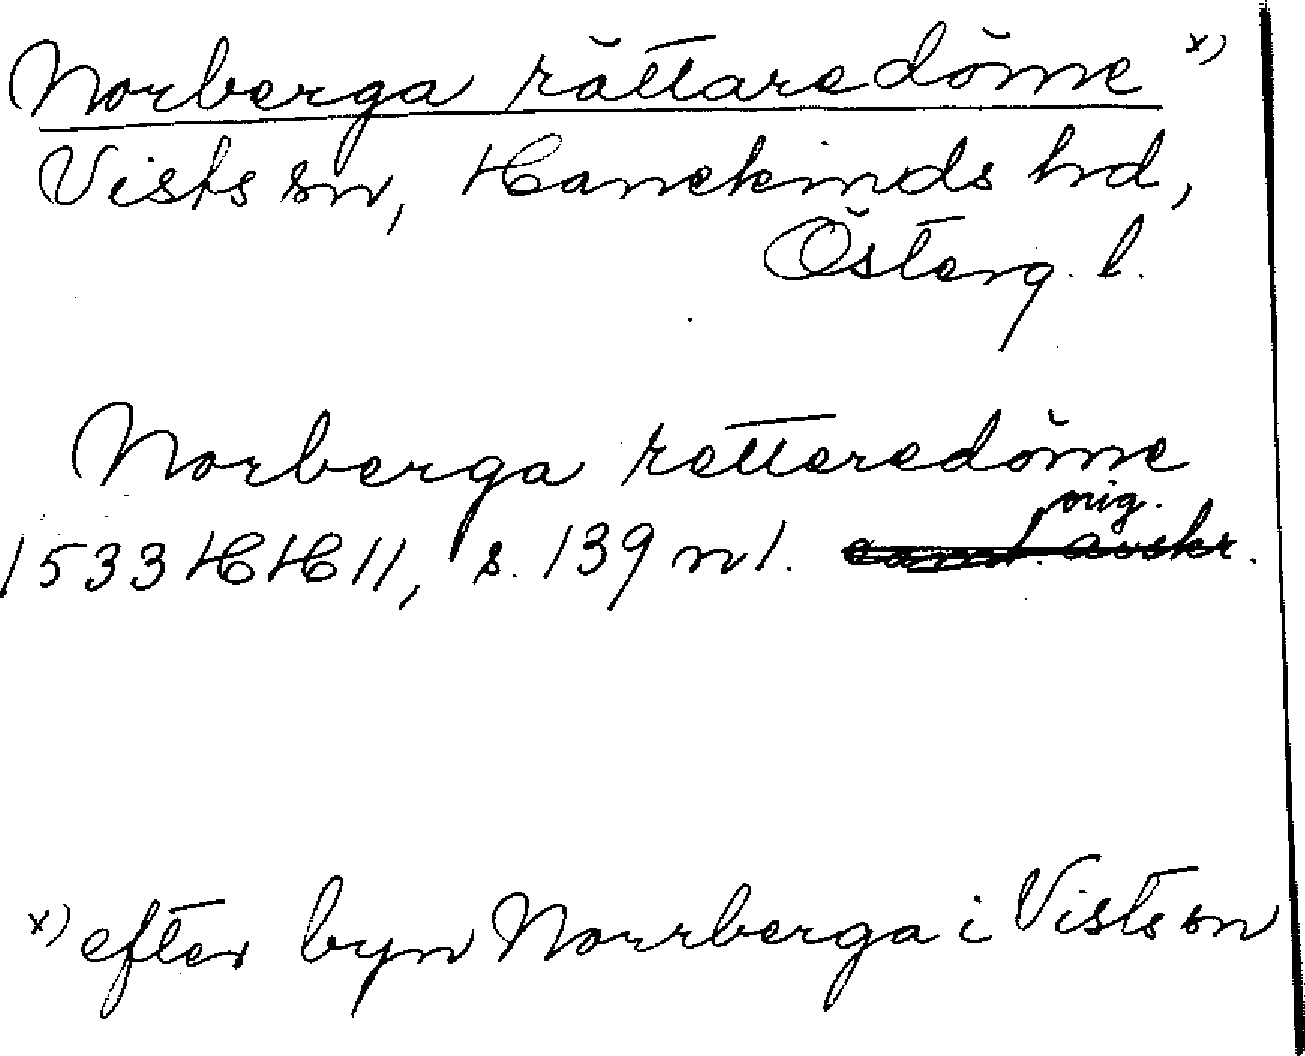 Norberga rättaredöme x)
Vists sn, Hanekinds hd,
Österg. l.
Norberga retteredöme
orig.
1533 HH 11, s. 139 nl. avskr.
x) efter byn Norrberga i Vists sn